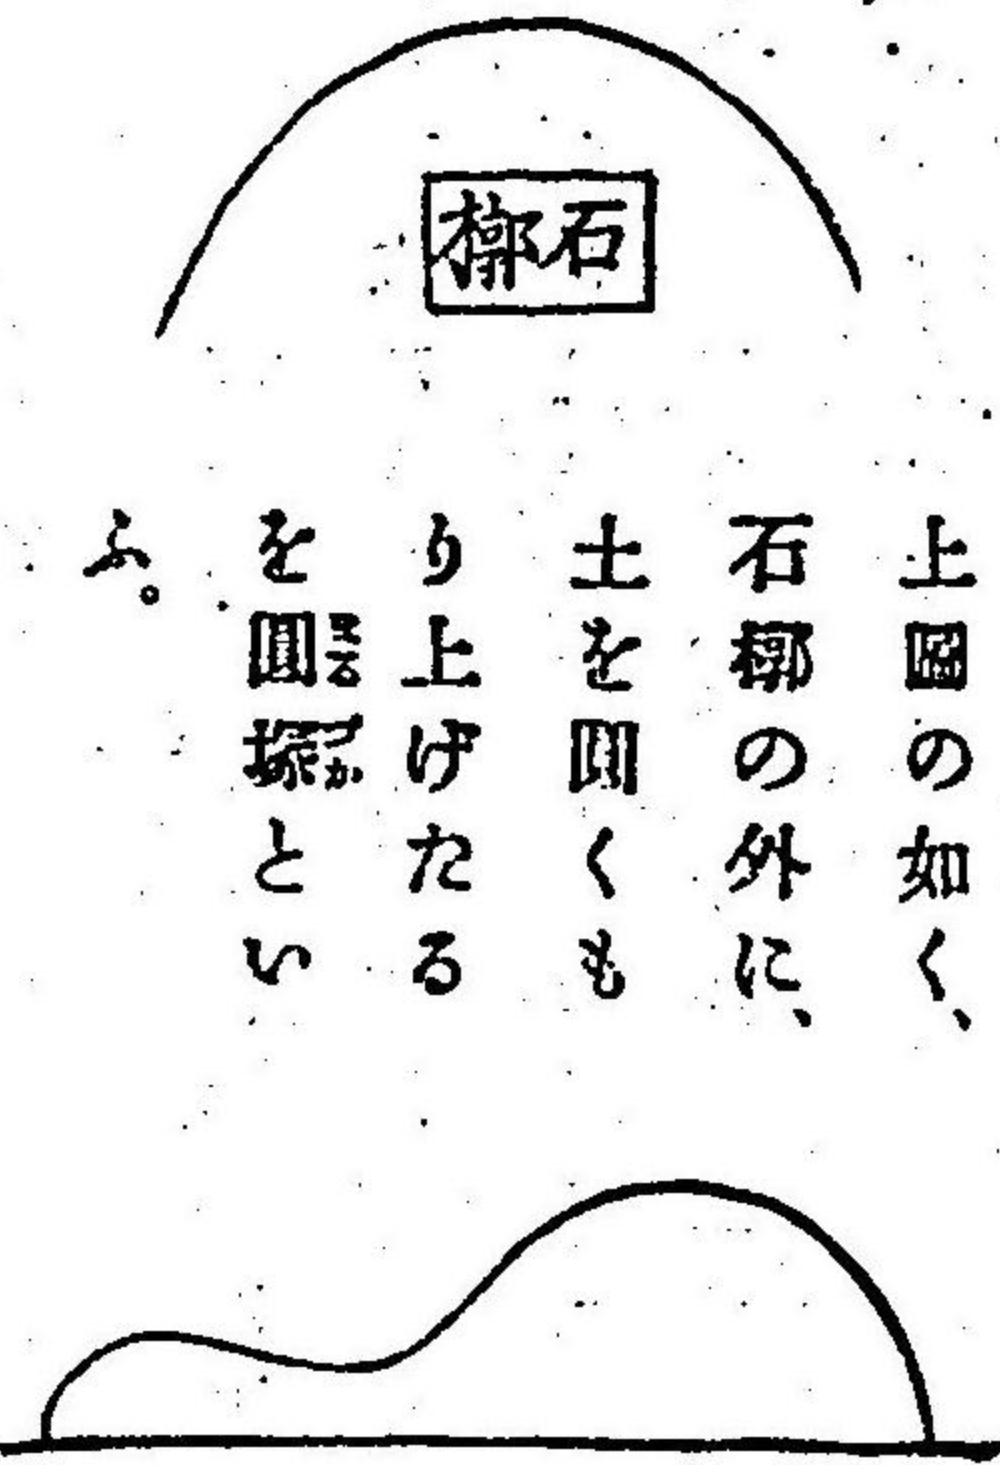 石槨
上圖の如く、
石槨の外に、
土を圓くも
り上げたる
を圓塚とい
ふ。
まる
づか